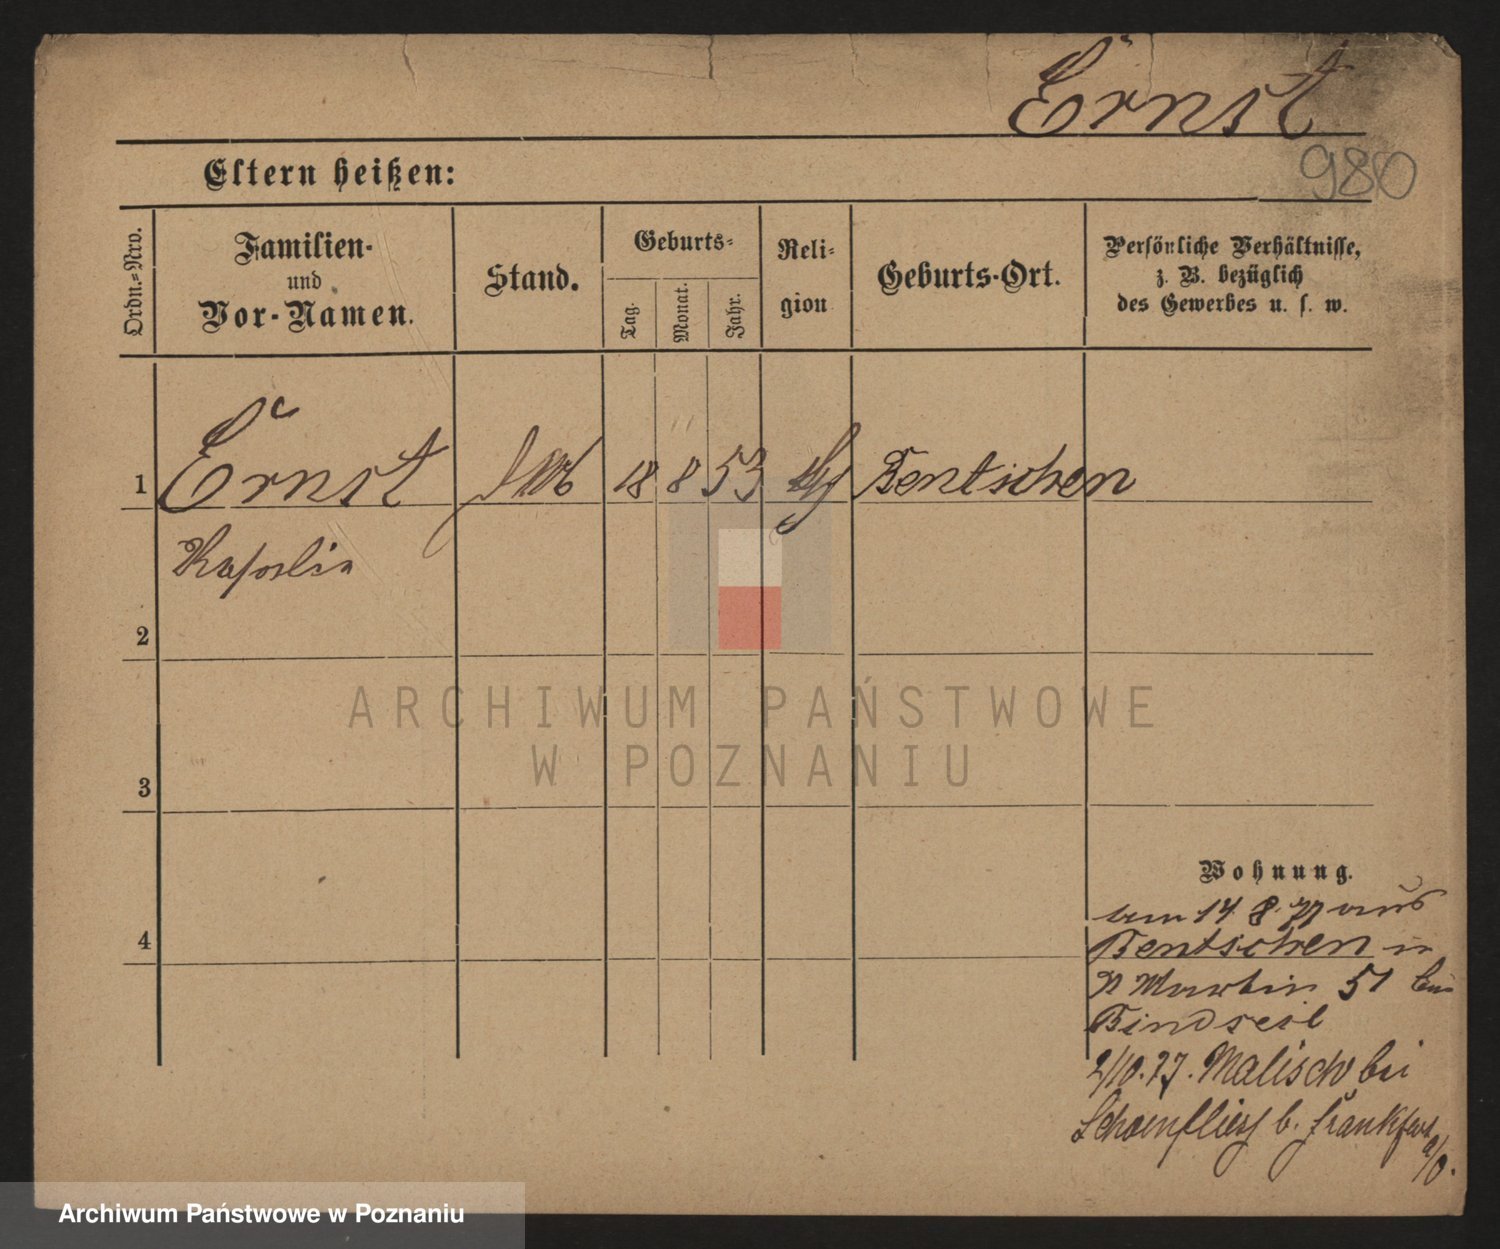 Ernst
980
Eltern heißen:
Ordn.=Nro.
Familien-
und
Vor-Namen.
Stand.
Geburts=
Tag.
Monat.
Jahr.
Reli=
gion
Geburts-Ort.
Persönliche Verhältnisse,
z. B. bezüglich
des Gewerbes u. s. w.
1 Ernst 18 8 53 Bentschen
2
3
4
Wohnung.
am 14 8 77 aus
Bentschen in
Martin 51 bei
Bindseil
2/10.77. Malisch bei
Schoenfliess b. Frankfurt
a/O.
ARCHIWUM PAŃSTWOWE
W POZNANIU
Archiwum Państwowe w Poznaniu